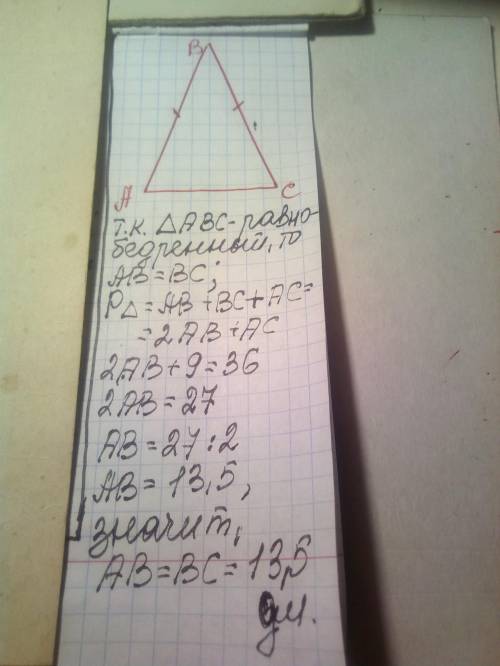 B
A
C
т.к. △ABC - равно-
бедренный, то
AB = BC;
P△ = AB + BC + AC =
= 2AB + AC
2AB + 9 = 36
2AB = 27
AB = 27 : 2
AB = 13,5,
значит,
AB = BC = 13,5
дм.